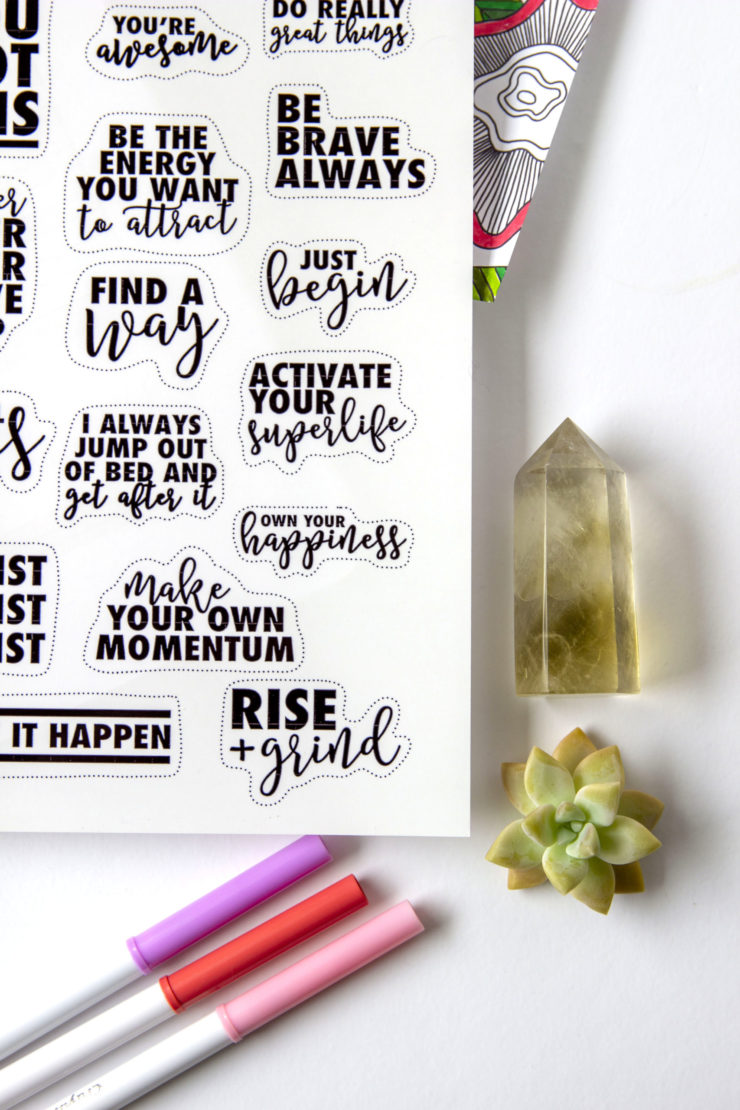 YOU'RE
awesome
DO REALLY
great things
BE THE
ENERGY
YOU WANT
to attract
BE
BRAVE
ALWAYS
FIND A
way
JUST
begin
ACTIVATE
YOUR
superlife
I ALWAYS
JUMP OUT
OF BED AND
get after it
OWN YOUR
happiness
make
YOUR OWN
MOMENTUM
IT HAPPEN
RISE
+grind